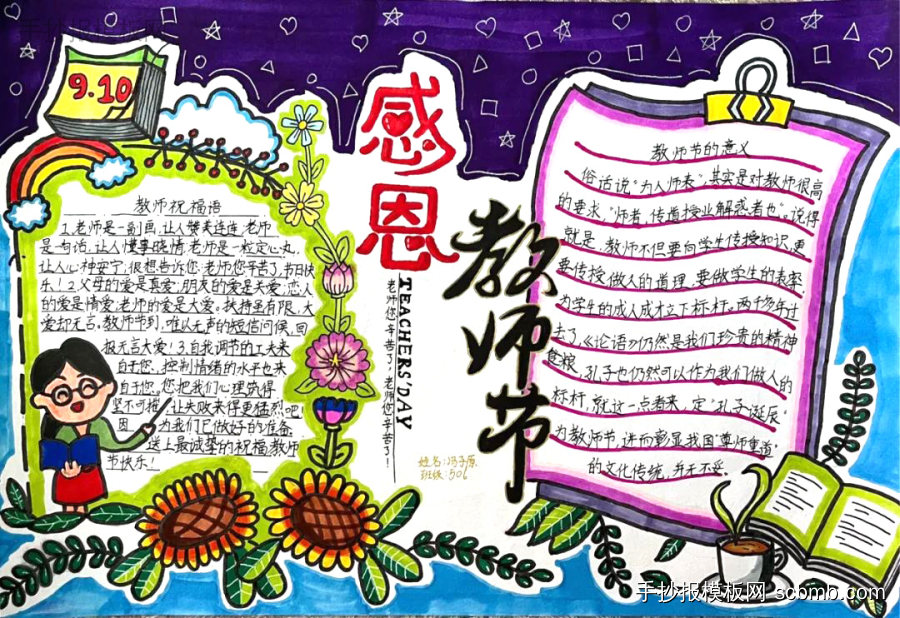 9.10
感恩
教师节
TEACHERS'DAY
老师您辛苦了，老师您辛苦了！
教师祝福语
1.老师是一副画，让人赞美连连，老师
是一句话，让人懂事晓情，老师是一粒定心丸，
让人心神安宁，很想告诉您：老师您辛苦了，节日快
乐！2.父母的爱是真爱，朋友的爱是关爱，恋人
的爱是情爱，老师的爱是大爱。扶持虽有限，大
爱却无言。教师节到，唯以无声的短信问候，回
报无言大爱！3.自我调节的工夫来
自于您，控制情绪的水平也来
自于您，您把我们心理筑得
坚不可摧，让失败来得更猛烈吧！
因 为我们已做好的准备，
送上最诚挚的祝福，教师
节快乐！
姓名：冯子原
班级：506
教师节的意义
俗话说"为人师表"，其实是对教师很高
的要求，"师者，传道授业解惑者也"。说得
就是，教师不但要向学生传授知识，更
要传授做人的道理，要做学生的表率，
为学生的成人成才立下标杆。两千多年过
去了，《论语》仍然是我们珍贵的精神
食粮，孔子也仍然可以作为我们做人的
标杆，就这一点看来，定"孔子诞辰"
为教师节，进而彰显我国"尊师重道"
的文化传统，并无不妥。
手抄报模板网 scbmb.com